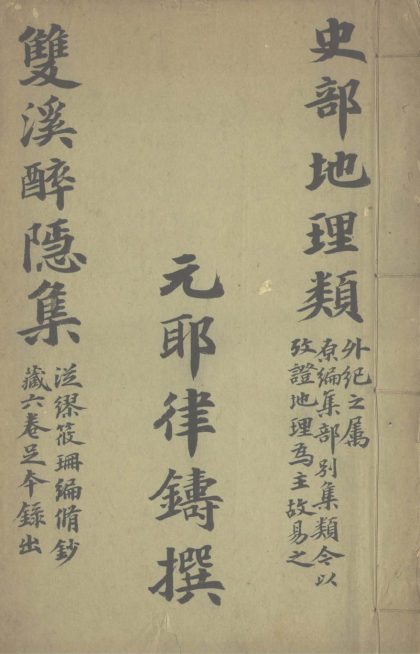 史部地理類
外紀之屬
原編集部別集類今以
攷證地理爲主故易之
元耶律鑄撰
雙溪醉隱集
從繆筱珊編脩鈔
藏六卷足本錄出